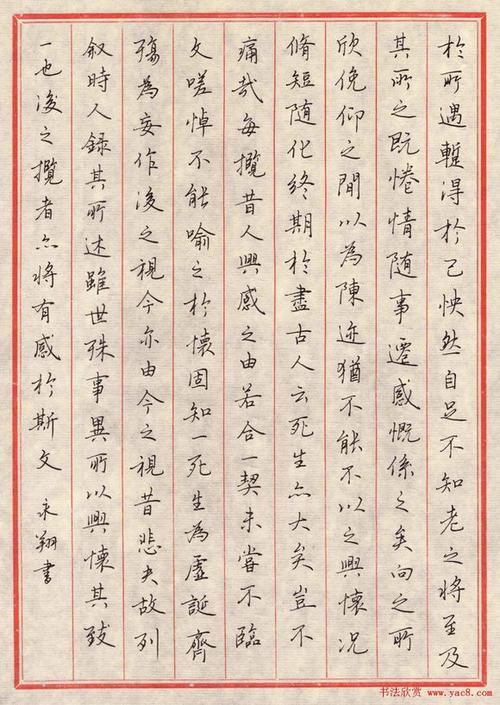 於所遇蹔得於己怏然自足不知老之将至及
其所之既惓情随事遷感慨係之矣向之所
欣俛仰之間以為陳迹猶不能不以之興懷况
脩短随化終期於盡古人云死生亦大矣豈不
痛哉每攬昔人興感之由若合一契未嘗不臨
文嗟悼不能喻之於懷固知一死生為虛誕齊
殤為妄作後之視今亦由今之視昔悲夫故列
叙時人録其所述雖世殊事異所以興懷其致
一也後之攬者亦将有感於斯文 永翔書
书法欣赏 www.yac8.com